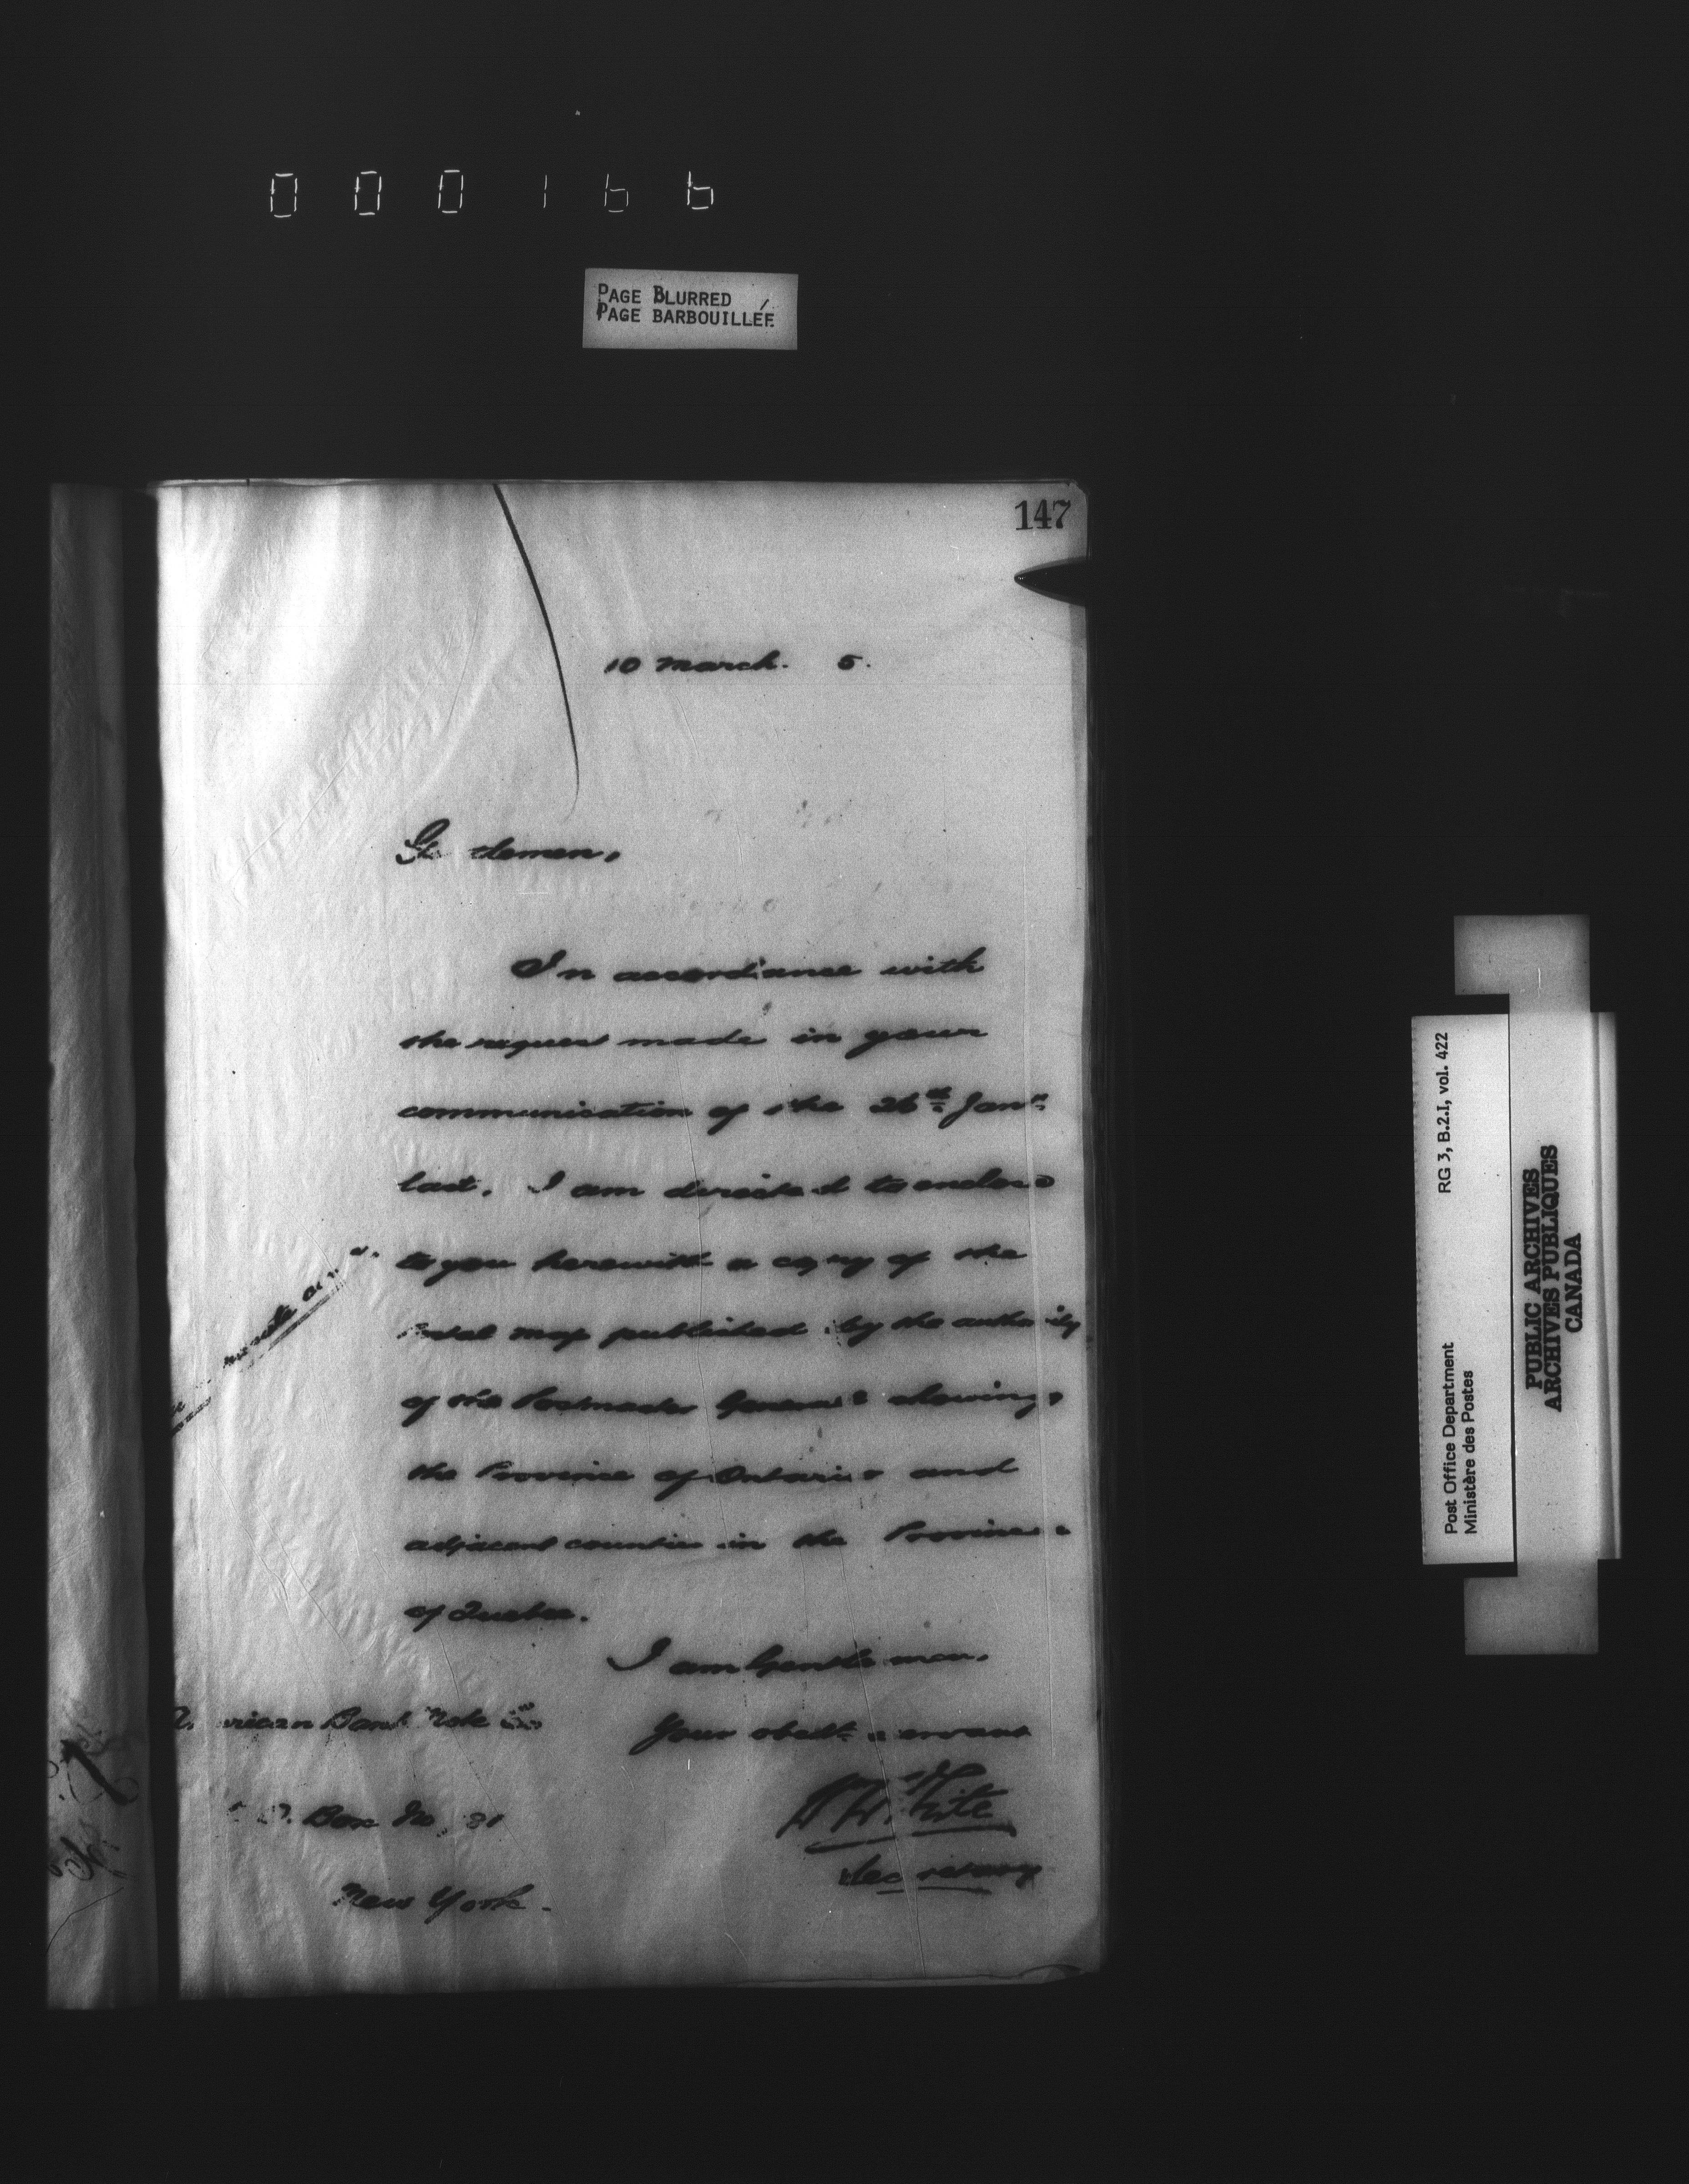 000166
PAGE BLURRED
PAGE BARBOUILLÉE
147
10 March. 5.
Gentlemen,
In accordance with
the request made in your
communication of the 26th Jany
last, I am directed to enclose
to you herewith a copy of the
Postal map published by the authority
of the Postmaster General showing
the Province of Ontario and
adjacent counties in the Province
of Quebec.
I am Gentlemen,
Your obedt servant
White
Secretary
American Bank Note Co
O. Box No
New York.
RG 3, B.2.I, vol. 422
Post Office Department
Ministère des Postes
PUBLIC ARCHIVES
ARCHIVES PUBLIQUES
CANADA